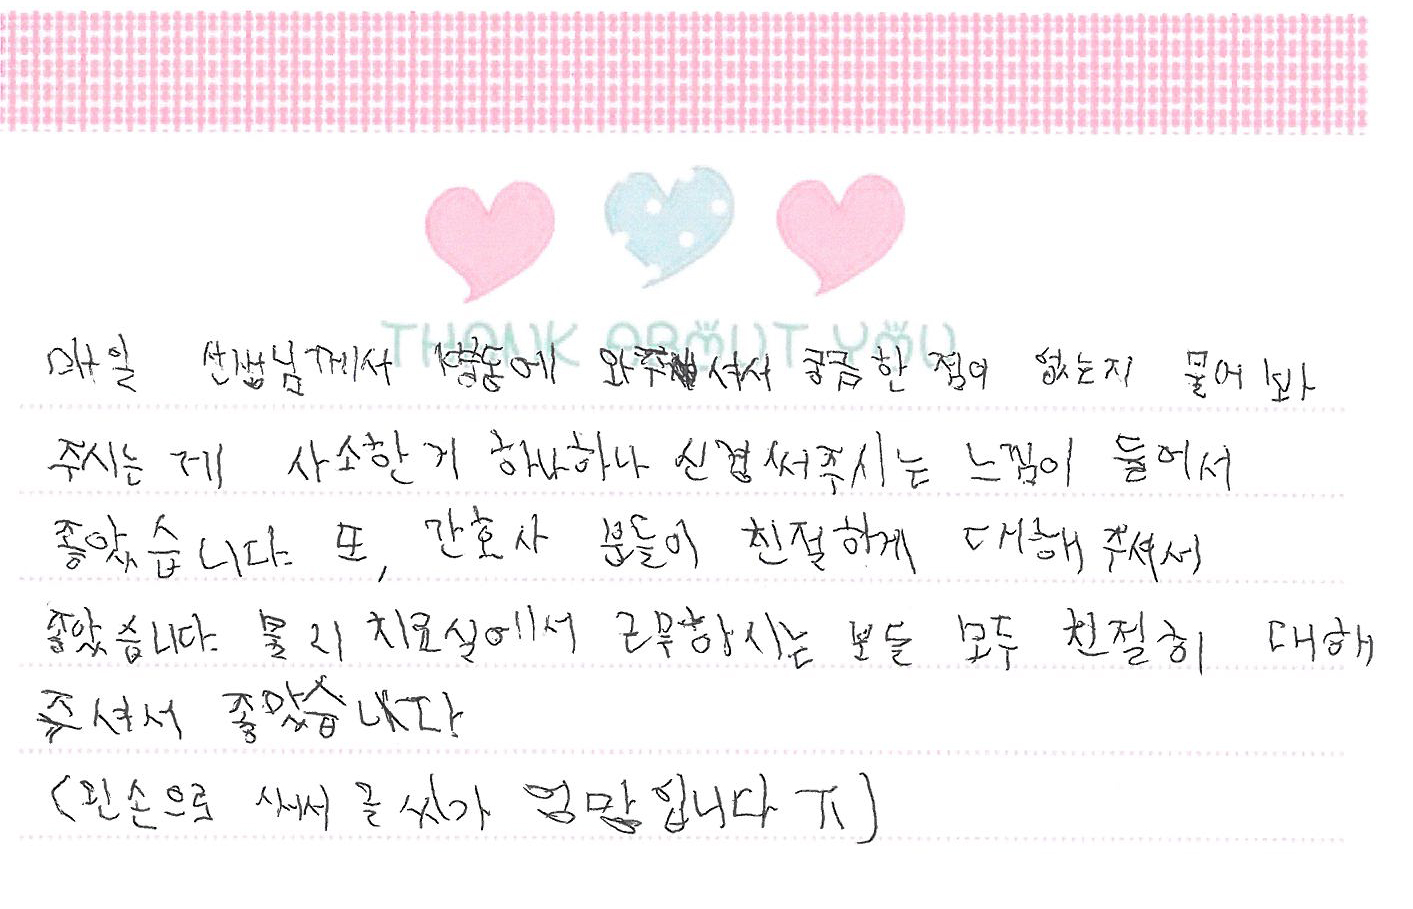 THANK ABOUT YOU
매일 선생님께서 병동에 와주셔서 궁금한 점이 없는지 물어 봐
주시는 게 사소한 거 하나하나 신경써주시는 느낌이 들어서
좋았습니다. 또, 간호사 분들이 친절하게 대해 주셔서
좋았습니다. 물리 치료실에서 근무하시는 분들 모두 친절히 대해
주셔서 좋았습니다
(왼손으로 써서 글씨가 엉망입니다 ㅠ)